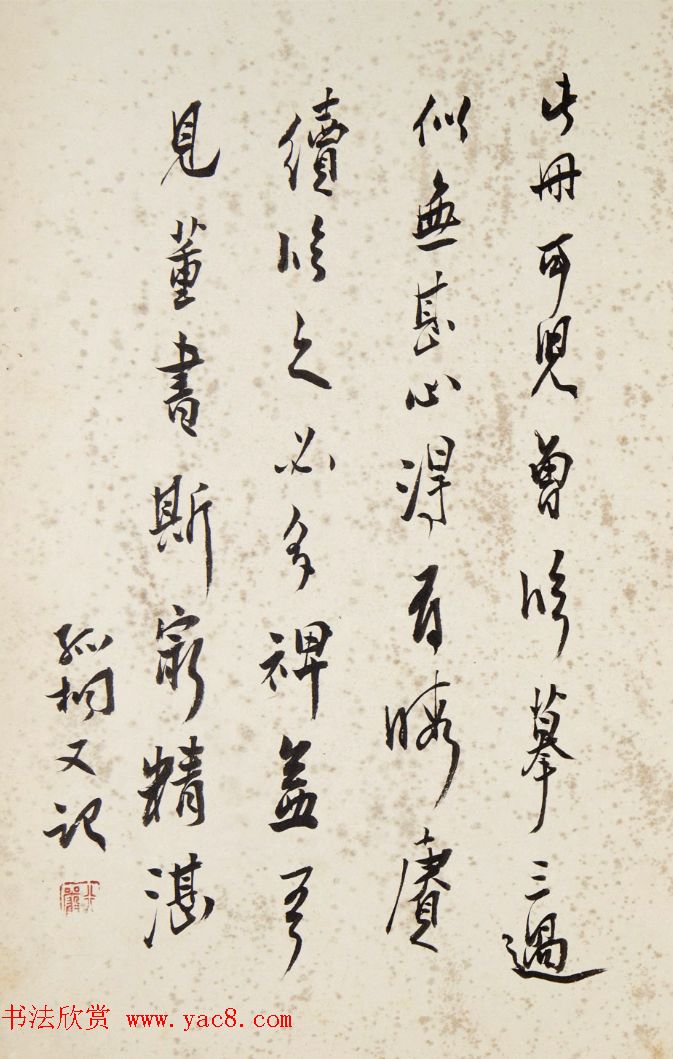 此冊可兒曾臨摹三過
似無甚心得有暇賡
續臨之必多裨益吾
見董書斯最精湛
孤桐又記
行嚴
书法欣赏 www.yac8.com